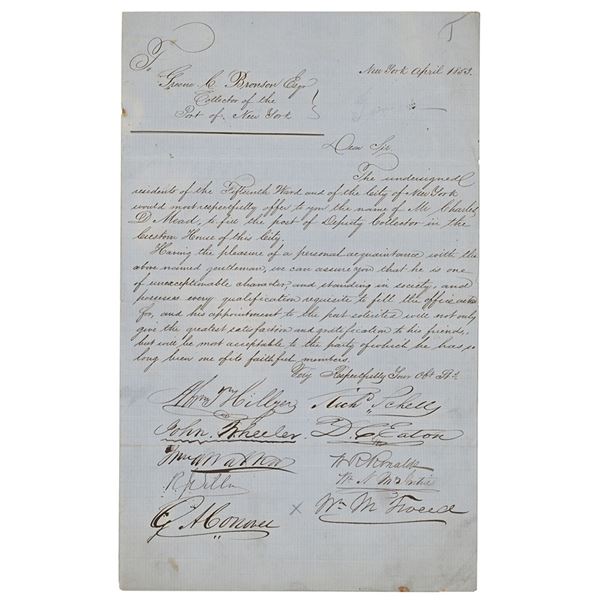 T
New York April 1853.
To
Greene C. Bronson Esqr
Collector of the
Port of New York
Dear Sir
The undersigned
residents of the Fifteenth Ward and of the City of New York
would most respectfully offer to you the name of Mr Charles
D. Mead, to fill the post of Deputy Collector in the
Custom House of this City.
Having the pleasure of a personal acquaintance with the
above named gentleman, we can assure you that he is one
of unexceptionable character, and standing in society, and
possesses every qualification requisite to fill the office asked
for, and his appointment to the post solicited will not only
give the greatest satisfaction and gratification to his friends,
but will be most acceptable to the party of which he has so
long been one of its faithful members.
Very Respectfully Your Obt St.
Hillyer Richd Schell
John Wheeler D. C. Eaton
Wm W. R. Ronalds
Wm N. McIntire
G. A. Conover x Wm M Tweed